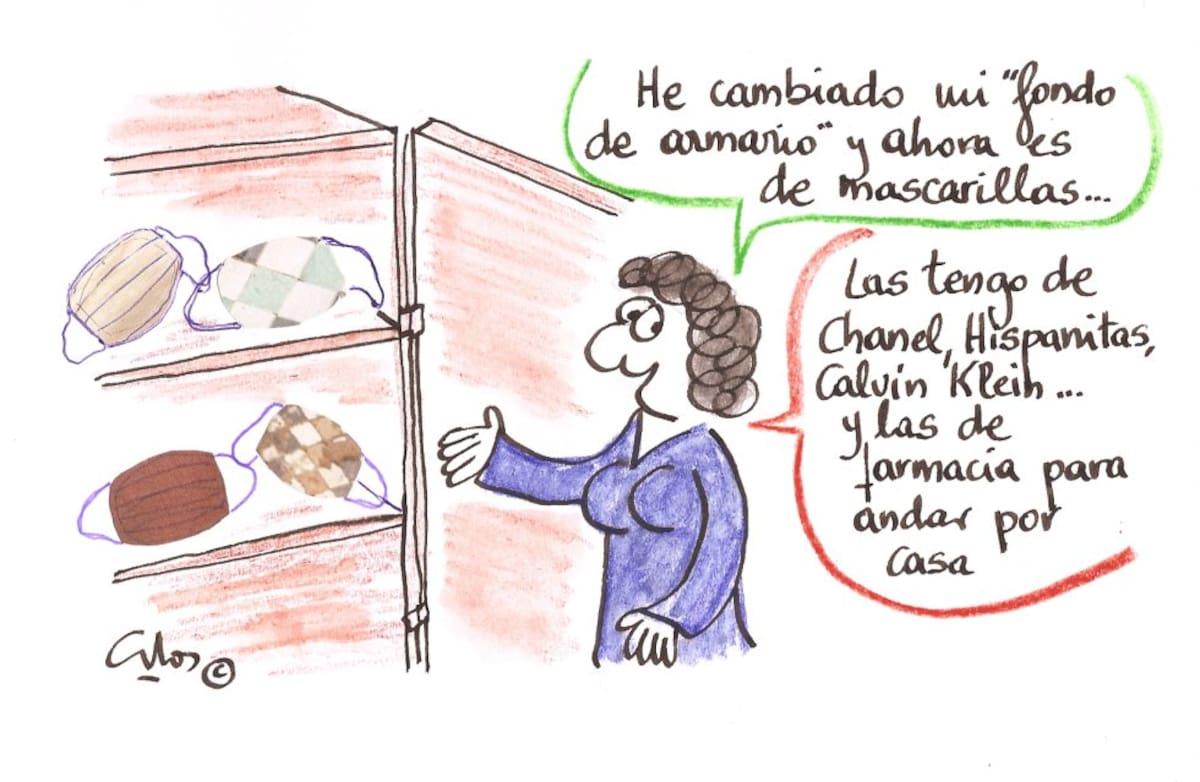 He cambiado mi "fondo
de armario" y ahora es
de mascarillas...
Las tengo de
Chanel, Hispanitas,
Calvin Klein...
y las de
farmacia para
andar por
casa
©